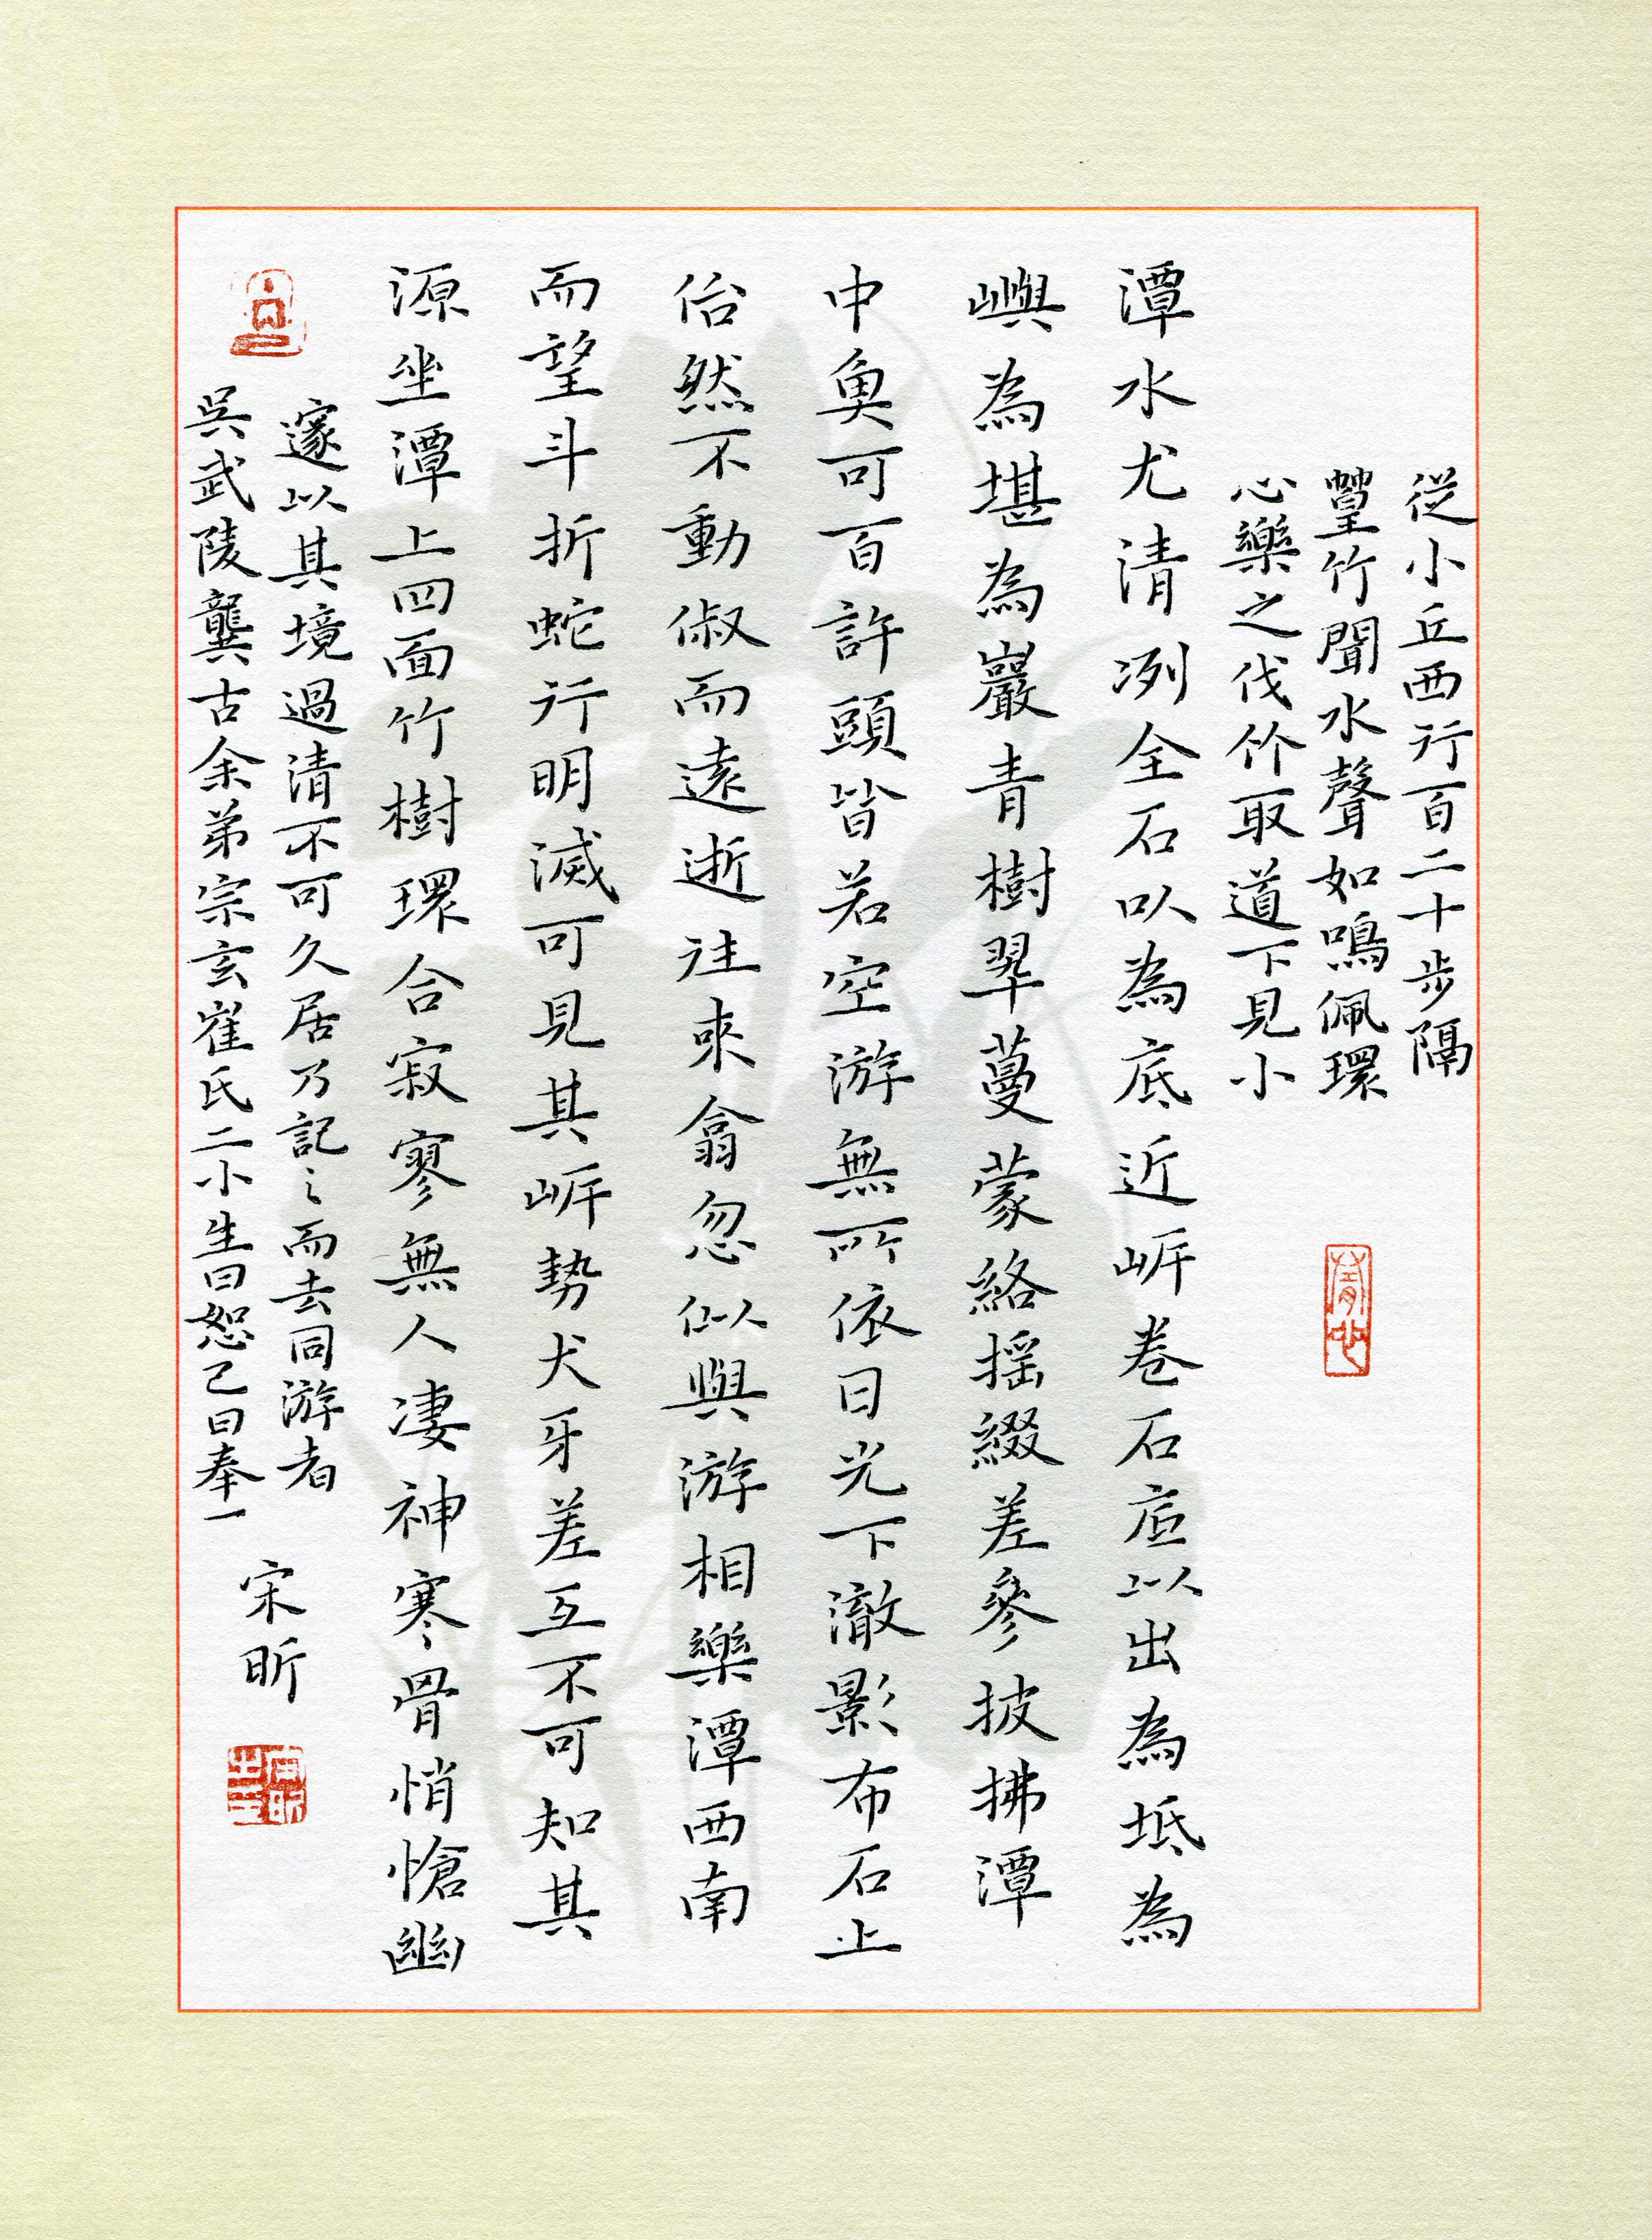 從小丘西行百二十步隔
篁竹聞水聲如鳴佩環
心樂之伐竹取道下見小
潭水尤清冽全石以為底近岸卷石底以出為坻為
嶼為堪為巖青樹翠蔓蒙絡摇綴差參披拂潭
中魚可百許頭皆若空游無所依日光下澈影布石上
佁然不動俶而遠逝往來翕忽似與游相樂潭西南
而望斗折蛇行明滅可見其岸勢犬牙差互不可知其
源坐潭上四面竹樹環合寂寥無人凄神寒骨悄愴幽
邃以其境過清不可久居乃記之而去同游者
吳武陵龔古余弟宗玄崔氏二小生曰恕己曰奉一
宋昕